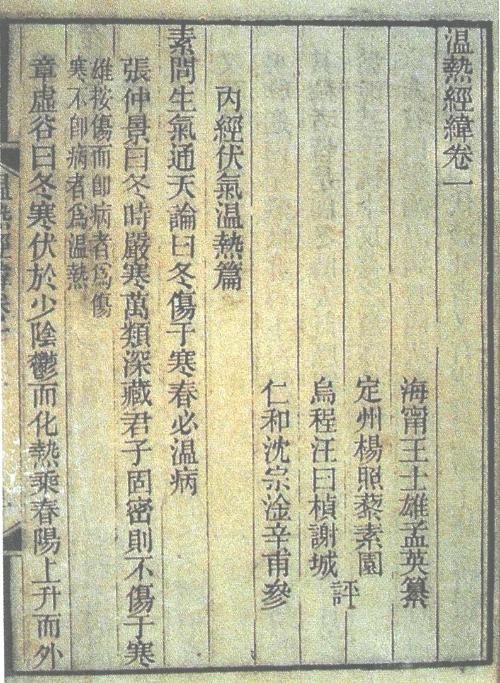 温熱經緯卷一
海甯王士雄孟英纂
定州楊照藜素園
烏程汪曰楨謝城
評
仁和沈宗淦辛甫參
內經伏氣溫熱篇
素問生氣通天論曰冬傷于寒春必溫病
張仲景曰冬時嚴寒萬類深藏君子固密則不傷于寒
雄按傷而卽病者爲傷
寒不卽病者爲溫熱
章虛谷曰冬寒伏於少陰鬱而化熱乘春陽上升而外